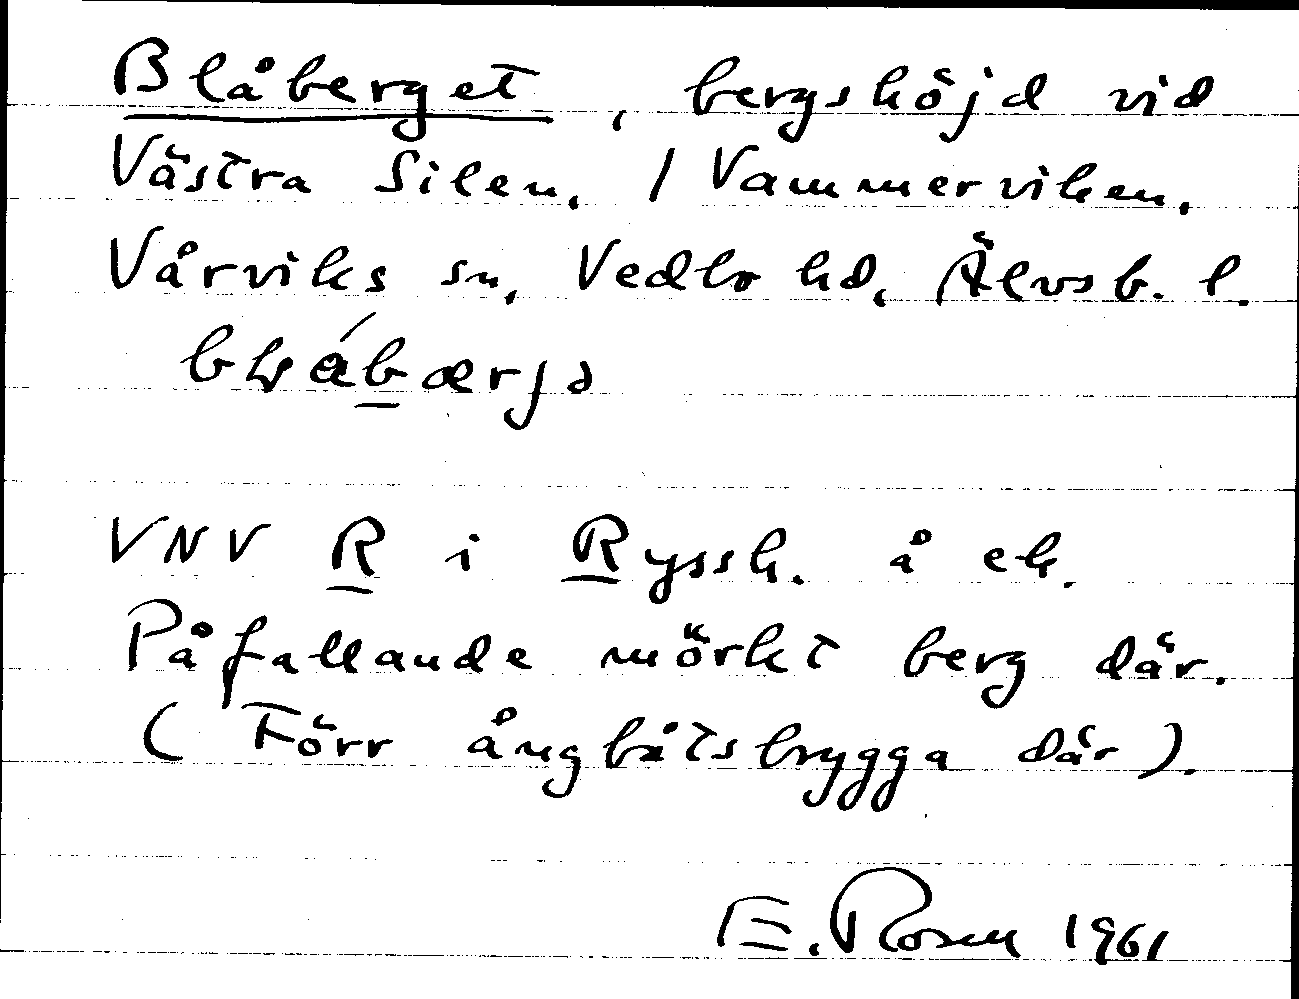 Blåberget, bergshöjd vid
Västra Silen, / Vammerviken,
Vårviks sn, Vedbo hd, Älvsb. l.
VNV R i Ryssh. å ek.
Påfallande mörkt berg där.
(Förr ångbåtsbrygga där).
E. Rosen 1961